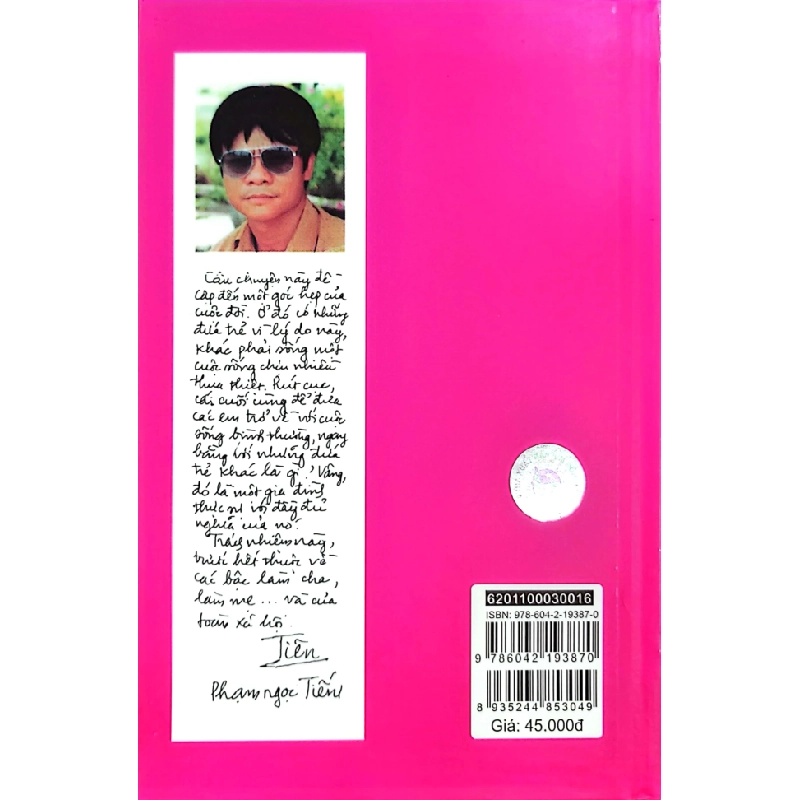 Câu chuyện này đề
cập đến một góc hẹp của
cuộc đời. Ở đó có những
đứa trẻ vì lý do này,
khác phải sống một
cuộc sống chịu nhiều
thua thiệt. Rút cục,
cái cuối cùng để đưa
các em trở về với cuộc
sống bình thường, ngang
bằng với những đứa
trẻ khác là gì? Vâng,
đó là một gia đình
thực sự với đầy đủ
nghĩa của nó.
Trách nhiệm này,
trước hết thuộc về
các bậc làm cha,
làm mẹ ... và của
toàn xã hội.
Tiến
Phạm Ngọc Tiến
6201100030016
ISBN: 978-604-2-19387-0
9 786042 193870
8 935244 853049
Giá: 45.000đ